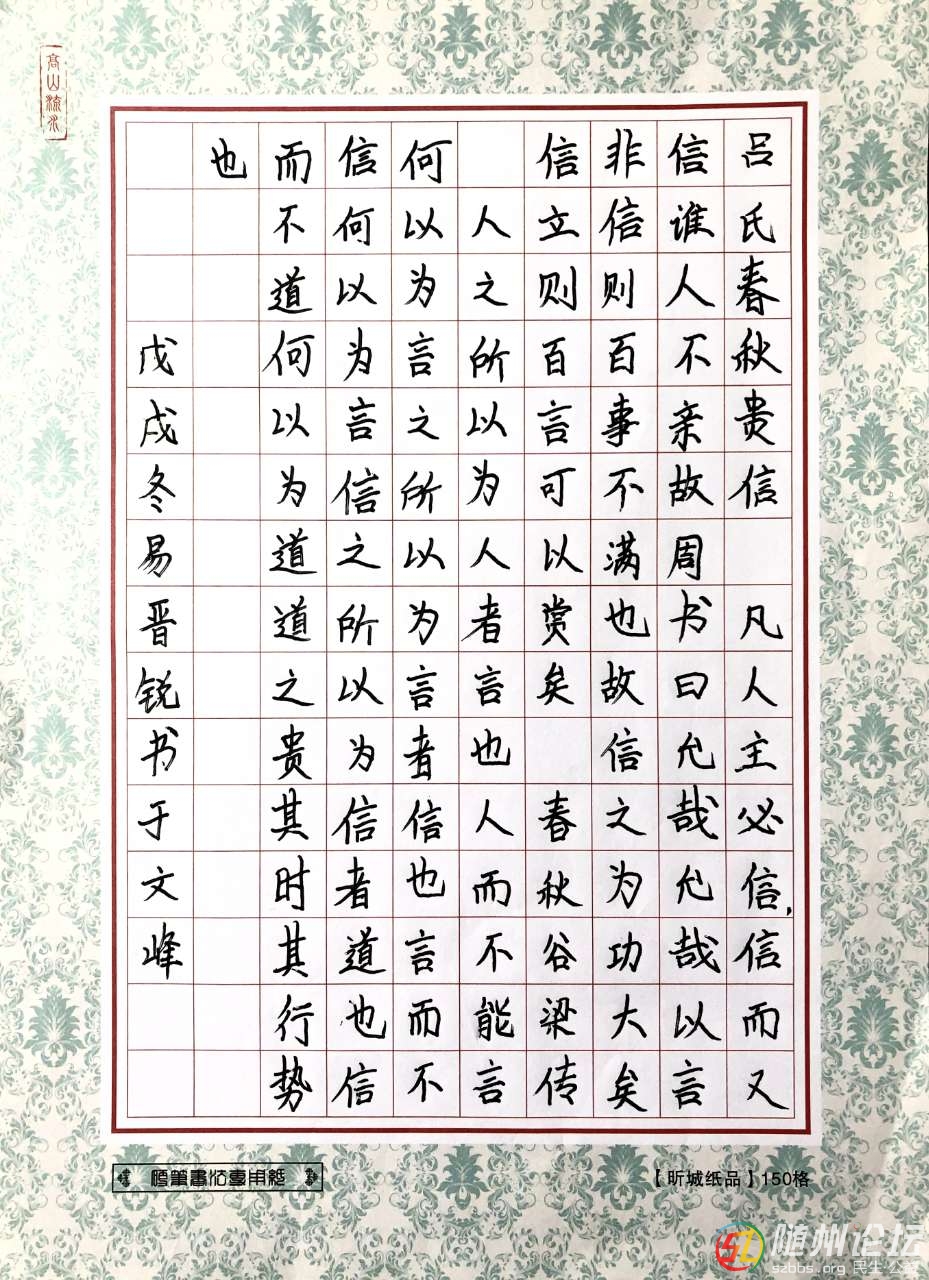 高山流水
吕氏春秋贵信 凡人主必信，信而又
信谁人不亲故周书曰允哉允哉以言
非信则百事不满也故信之为功大矣
信立则百言可以赏矣 春秋谷梁传
人之所以为人者言也人而不能言
何以为言之所以为言者信也言而不
信何以为言信之所以为信者道也信
而不道何以为道道之贵其时其行势
也
戊戌冬易晋锐书于文峰
硬笔书法专用纸
【昕城纸品】150格
随州论坛
szbbs.org 民生·公益